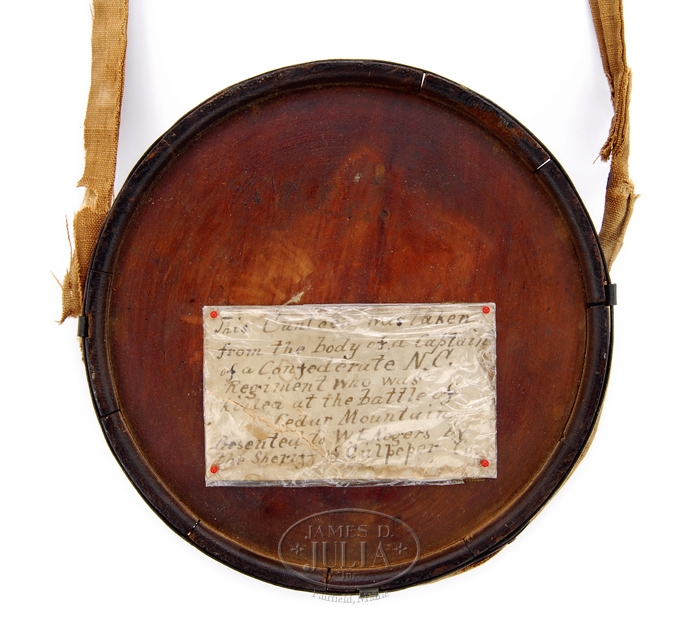 This Canteen was taken
from the body of a Captain
of a Confederate N.C.
Regiment who was
killed at the battle of
Cedar Mountain
Presented to W. Rogers by
the Sheriff of Culpeper
JAMES D.
JULIA
Inc.
Fairfield, Maine